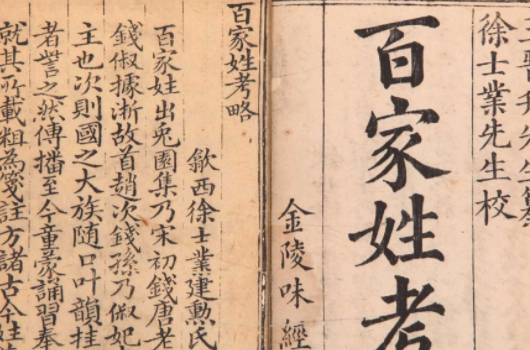 徐士業先生校
百家姓考
金陵味經
百家姓考略
歙西徐士業建勳氏
百家姓出兔園集乃宋初錢唐老
錢俶據浙故首趙次錢孫乃俶妃
主也次則國之大族随口叶韻挂
者訾之然傳播至今童蒙誦習奉
就其所載粗為箋註方諸古今姓